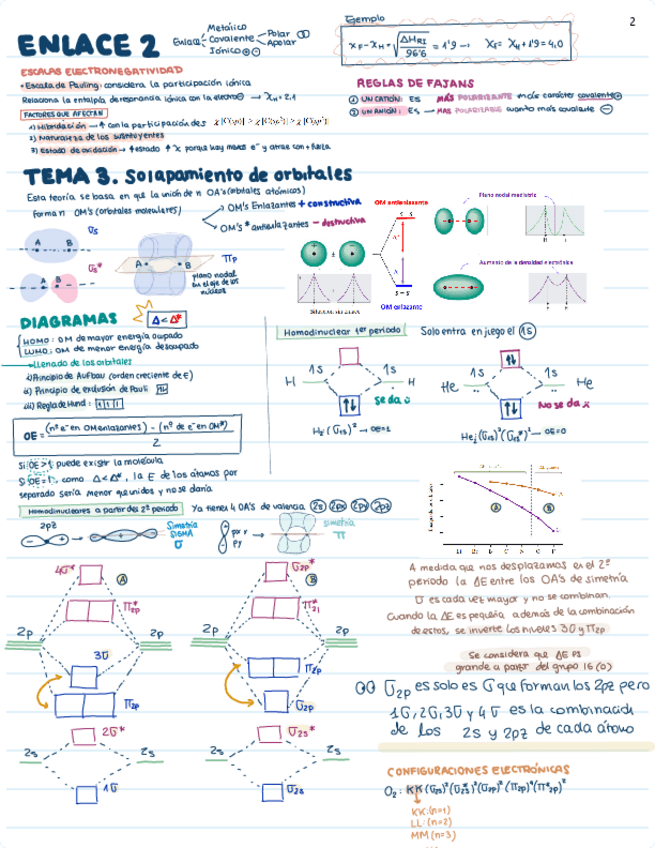 2
ENLACE 2
Enlace
Metálico
Covalente
Polar
Apolar
Iónico
Ejemplo
ESCALAS ELECTRONEGATIVIDAD
• Escala de Pauling: considera la participación iónica
Relaciona la entalpía de resonancia iónica con la electro⊖ → XH = 2,1
FACTORES QUE AFECTAN
1) Hibridación → ↑ con la participación de s
2) Naturaleza de los sustituyentes
3) Estado de oxidación → ↑ estado ↑ X porque hay menos e⁻ y atrae con + fuerza
REGLAS DE FAJANS
① UN CATIÓN: ES MÁS POLARIZANTE → más carácter covalente
② UN ANIÓN: ES MÁS POLARIZABLE cuanto más covalente
TEMA 3. Solapamiento de orbitales
Esta teoría se basa en que la unión de n OA's (orbitales atómicos)
forma n OM's (orbitales moleculares)
OM's Enlazantes + constructiva
OM's* antienlazantes - destructiva
OM antienlazante
OM enlazante
Plano nodal mediatriz
Aumento de la densidad electrónica
σs
A B
σs*
A B
A B
πp
plano nodal
en el eje de los
núcleos
DIAGRAMAS
Δ < Δ*
HOMO: OM de mayor energía ocupado
LUMO: OM de menor energía desocupado
→ Llenado de los orbitales
i) Principio de Aufbau (orden creciente de E)
ii) Principio de exclusión de Pauli
iii) Regla de Hund:
OE = (nº e⁻ en OM enlazantes) - (nº de e⁻ en OM*)
2
Si OE > 1: puede existir la molécula
como Δ < Δ*, la E de los átomos por
separado sería menor que unidos y no se daría
Homodinuclear 1er período
Solo entra en juego el 1s
H 1s 1s H
Se da
H₂ (σ1s)² → OE=1
He 1s 1s He
No se da
He₂ (σ1s)² (σ1s*)² → OE=0
Homodinucleares a partir del 2º período
Ya tienes 4 OA's de valencia 2s 2px 2py 2pz
2pz
Simetría
SIGMA
σ
px y
py
simetría
π
A B
Li B C N O F
4σ* A
π2p*
2p 2p
3σ
π2p
2σ*
2s 2s
1σ
σ2p* B
2p 2p
π2p
σ2p
σ2s*
2s 2s
σ2s
A medida que nos desplazamos en el 2º
período la ΔE entre los OA's de simetría
σ es cada vez mayor y no se combinan.
Cuando la ΔE es pequeña además de la combinación
de estos, se invierte los niveles 3σ y π2p
Se considera que ΔE es
grande a partir del grupo 16 (O)
σ2p es solo es σ que forman los 2pz pero
1σ, 2σ, 3σ y 4σ es la combinación
de los 2s y 2pz de cada átomo
CONFIGURACIONES ELECTRÓNICAS
O₂: KK (σ2s)² (σ2s*)² (σ2p)² (π2p)⁴ (π*2p)²
KK: (n=1)
LL: (n=2)
MM (n=3)